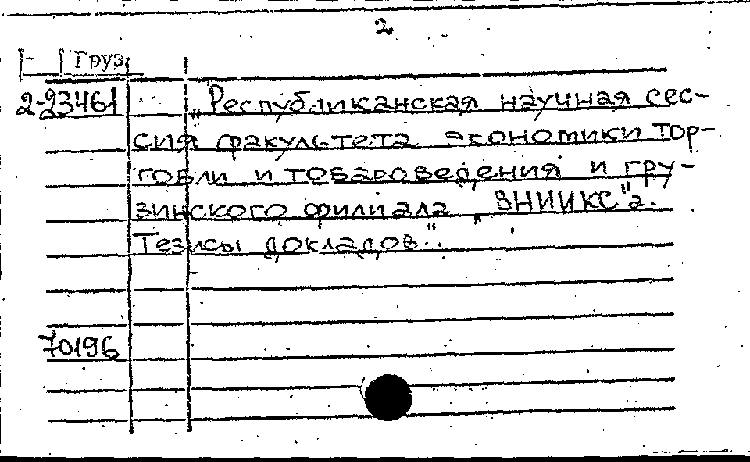 2
Груз
2-93461 „Республиканская научная сес-
сия факультета экономики тор-
говли и товароведения и гру-
зинского филиала „ВНИИКС"а.
Тезисы докладов".
70196